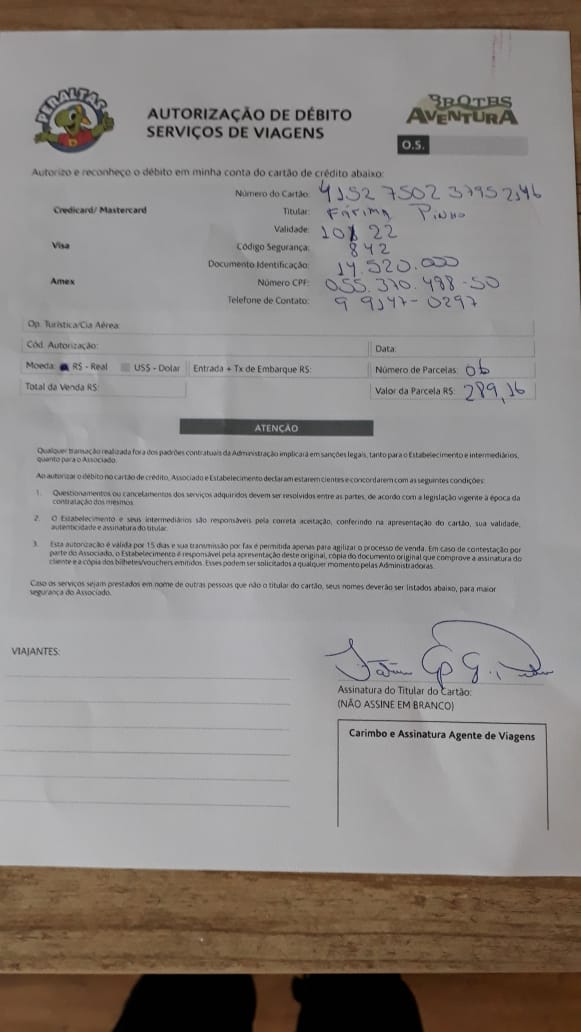 PERALTAS
BROTAS
AVENTURA
AUTORIZAÇÃO DE DÉBITO
SERVIÇOS DE VIAGENS
O.S.
Autorizo e reconheço o débito em minha conta do cartão de crédito abaixo:
Número do Cartão: 4152 7502 3795 2146
Credicard/ Mastercard Titular: FÁTIMA PINHO
Validade: 10/22
Visa Código Segurança: 842
Documento Identificação: 14.520.000
Amex Número CPF: 055.370.498-50
Telefone de Contato: 9 9147-0297
Op. Turística/Cia Aérea:
Cód. Autorização: Data:
Moeda: R$ - Real US$ - Dolar Entrada + Tx de Embarque R$: Número de Parcelas: 06
Total da Venda R$: Valor da Parcela R$: 289,16
ATENÇÃO
Qualquer transação realizada fora dos padrões contratuais da Administração implicará em sanções legais, tanto para o Estabelecimento e intermediários,
quanto para o Associado.
Ao autorizar o débito no cartão de crédito, Associado e Estabelecimento declaram estarem cientes e concordarem com as seguintes condições:
1. Questionamentos ou cancelamentos dos serviços adquiridos devem ser resolvidos entre as partes, de acordo com a legislação vigente à época da
contratação dos mesmos.
2. O Estabelecimento e seus intermediários são responsáveis pela correta aceitação, conferindo na apresentação do cartão, sua validade,
autenticidade e assinatura do titular.
3. Esta autorização é válida por 15 dias e sua transmissão por fax é permitida apenas para agilizar o processo de venda. Em caso de contestação por
parte do Associado, o Estabelecimento é responsável pela apresentação deste original, cópia do documento original que comprove a assinatura do
cliente e a cópia dos bilhetes/vouchers emitidos. Esses podem ser solicitados a qualquer momento pelas Administradoras.
Caso os serviços sejam prestados em nome de outras pessoas que não o titular do cartão, seus nomes deverão ser listados abaixo, para maior
segurança do Associado.
VIAJANTES:
Assinatura do Titular do Cartão:
(NÃO ASSINE EM BRANCO)
Carimbo e Assinatura Agente de Viagens